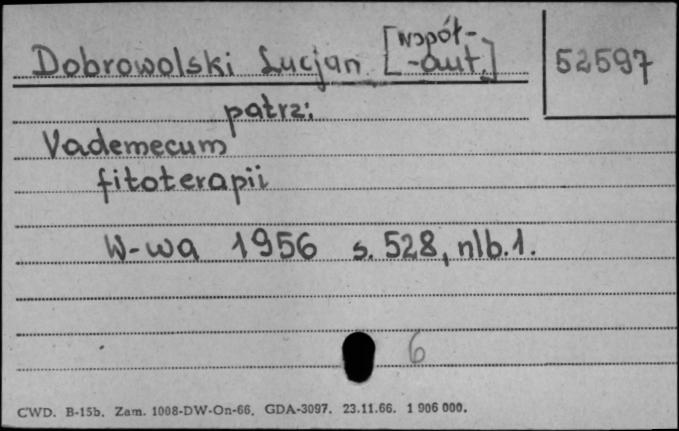 Dobrowolski Lucjan [współ-
-aut.]
52597
patrz:
Vademecum
fitoterapii
W-wa 1956 s. 528, nlb. 1.
6
CWD. B-15b. Zam. 1008-DW-On-66. GDA-3097. 23.11.66. 1 906 000.